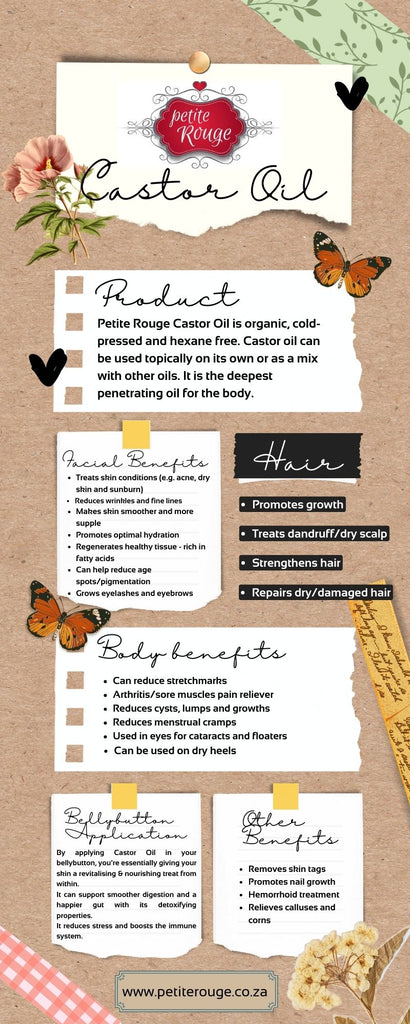 petite
Rouge
Castor Oil
Product
Petite Rouge Castor Oil is organic, cold-
pressed and hexane free. Castor oil can
be used topically on its own or as a mix
with other oils. It is the deepest
penetrating oil for the body.
Facial Benefits
• Treats skin conditions (e.g. acne, dry
skin and sunburn)
• Reduces wrinkles and fine lines
• Makes skin smoother and more
supple
• Promotes optimal hydration
• Regenerates healthy tissue - rich in
fatty acids
• Can help reduce age
spots/pigmentation
• Grows eyelashes and eyebrows
Hair
• Promotes growth
• Treats dandruff/dry scalp
• Strengthens hair
• Repairs dry/damaged hair
Body benefits
• Can reduce stretchmarks
• Arthritis/sore muscles pain reliever
• Reduces cysts, lumps and growths
• Reduces menstrual cramps
• Used in eyes for cataracts and floaters
• Can be used on dry heels
Bellybutton
Application
By applying Castor Oil in your
bellybutton, you're essentially giving your
skin a revitalising & nourishing treat from
within.
It can support smoother digestion and a
happier gut with its detoxifying
properties.
It reduces stress and boosts the immune
system.
Other
Benefits
• Removes skin tags
• Promotes nail growth
• Hemorrhoid treatment
• Relieves calluses and
corns
www.petiterouge.co.za